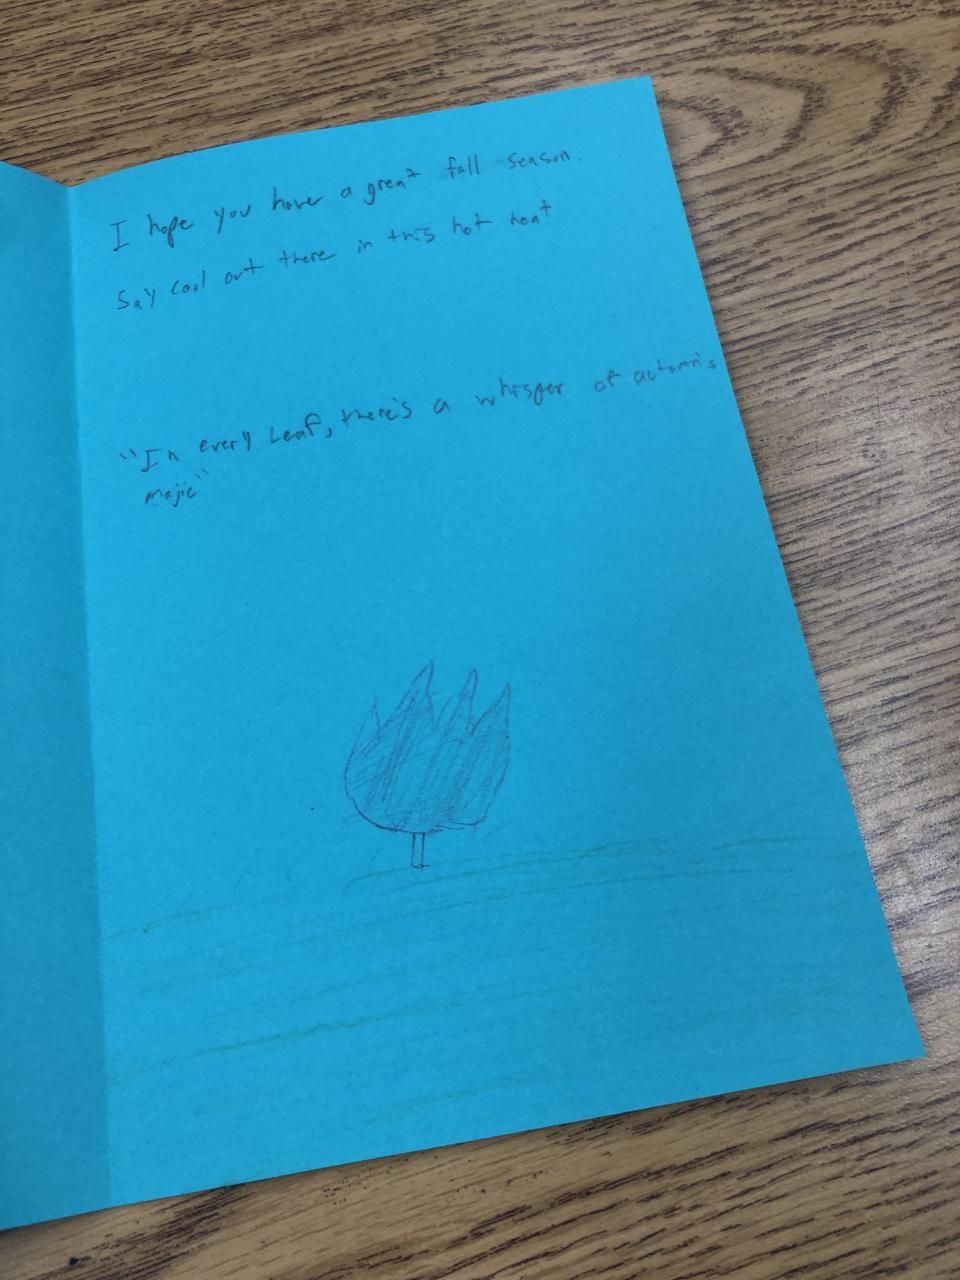 I hope you have a great fall season.
Say cool out there in this hot heat
"In every Leaf, there's a whisper of automn's
majic"